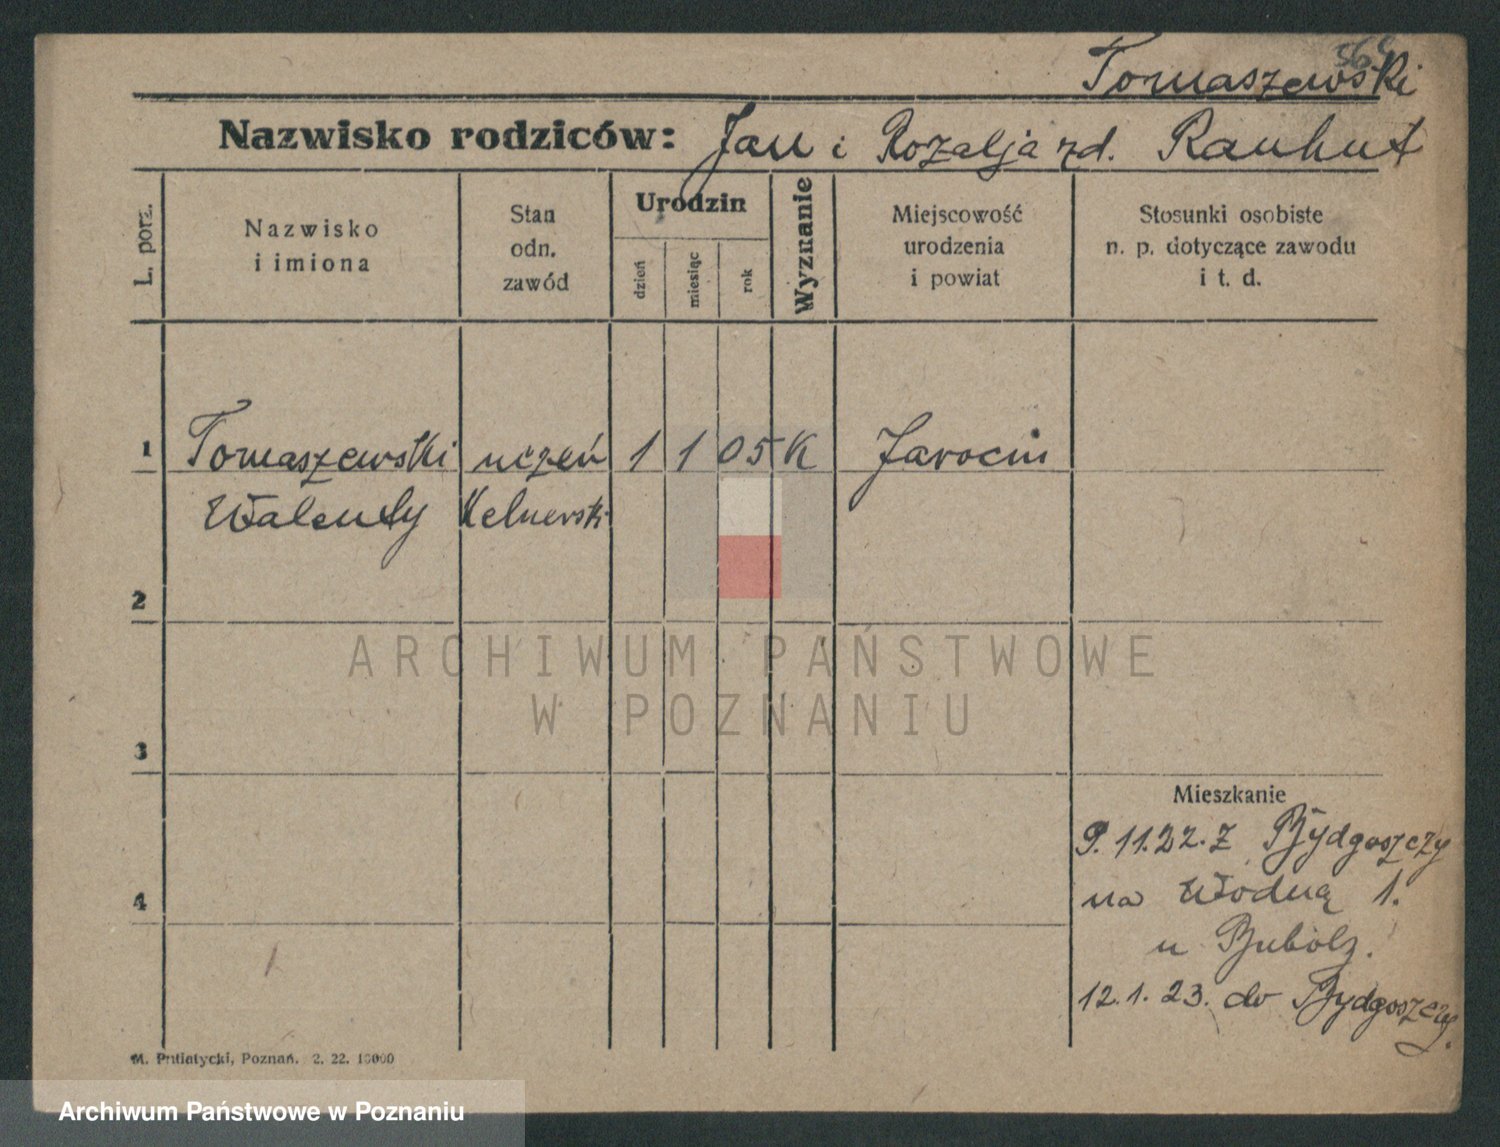 Tomaszewski
Nazwisko rodziców: Jan i Rozalja zd. Rauhut
L. porz.
Nazwisko
i imiona
Stan
odn.
zawód
Urodzin
dzień
miesiąc
rok
Wyznanie
Miejscowość
urodzenia
i powiat
Stosunki osobiste
n. p. dotyczące zawodu
i t. d.
1 Tomaszewski uczeń 1 1 05 K Jarocin
Walenty Kelnerski
2
ARCHIWUM PAŃSTWOWE
W POZNANIU
3
Mieszkanie
9. 11. 22. z Bydgoszczy
4
na Wodną 1.
u Bubolz.
12. 1. 23. do Bydgoszczy.
M. Putiatycki, Poznań. 2. 22. 10000
Archiwum Państwowe w Poznaniu